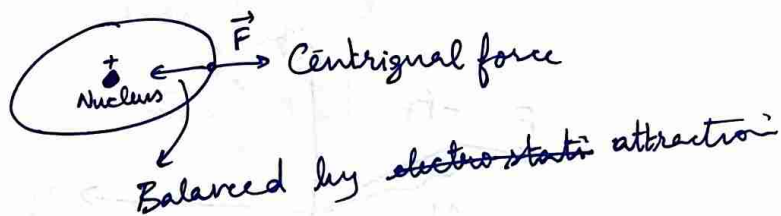 +
Nucleus
F
Centrignal force
Balanced by electrostati attraction